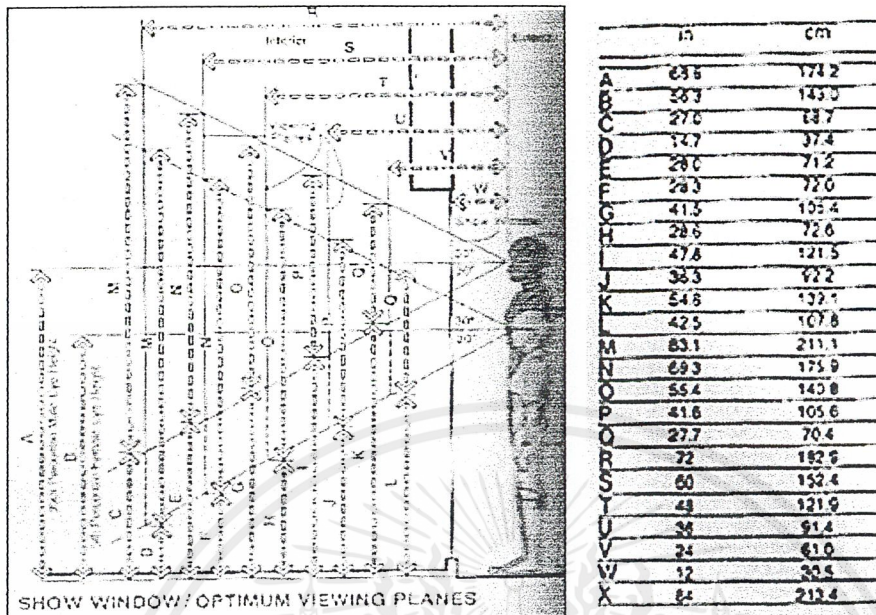 R
Interior
S
T
U
V
W
M
N
O
P
Q
M
N
O
P
Q
30°
30°
A
B
C
D
E
F
G
H
I
J
K
L
SHOW WINDOW/OPTIMUM VIEWING PLANES
in cm
A 174.2
B 56.3 143.0
C 27.0 68.7
D 14.7 37.4
E 28.0 71.2
F 28.3 72.0
G 41.5 105.4
H 28.6 72.6
I 47.8 121.5
J 36.3 92.2
K 54.8 139.1
L 42.5 107.8
M 83.1 211.1
N 69.3 175.9
O 55.4 140.8
P 41.6 105.6
Q 27.7 70.4
R 72 182.9
S 60 152.4
T 48 121.9
U 36 91.4
V 24 61.0
W 12 30.5
X 84 213.4